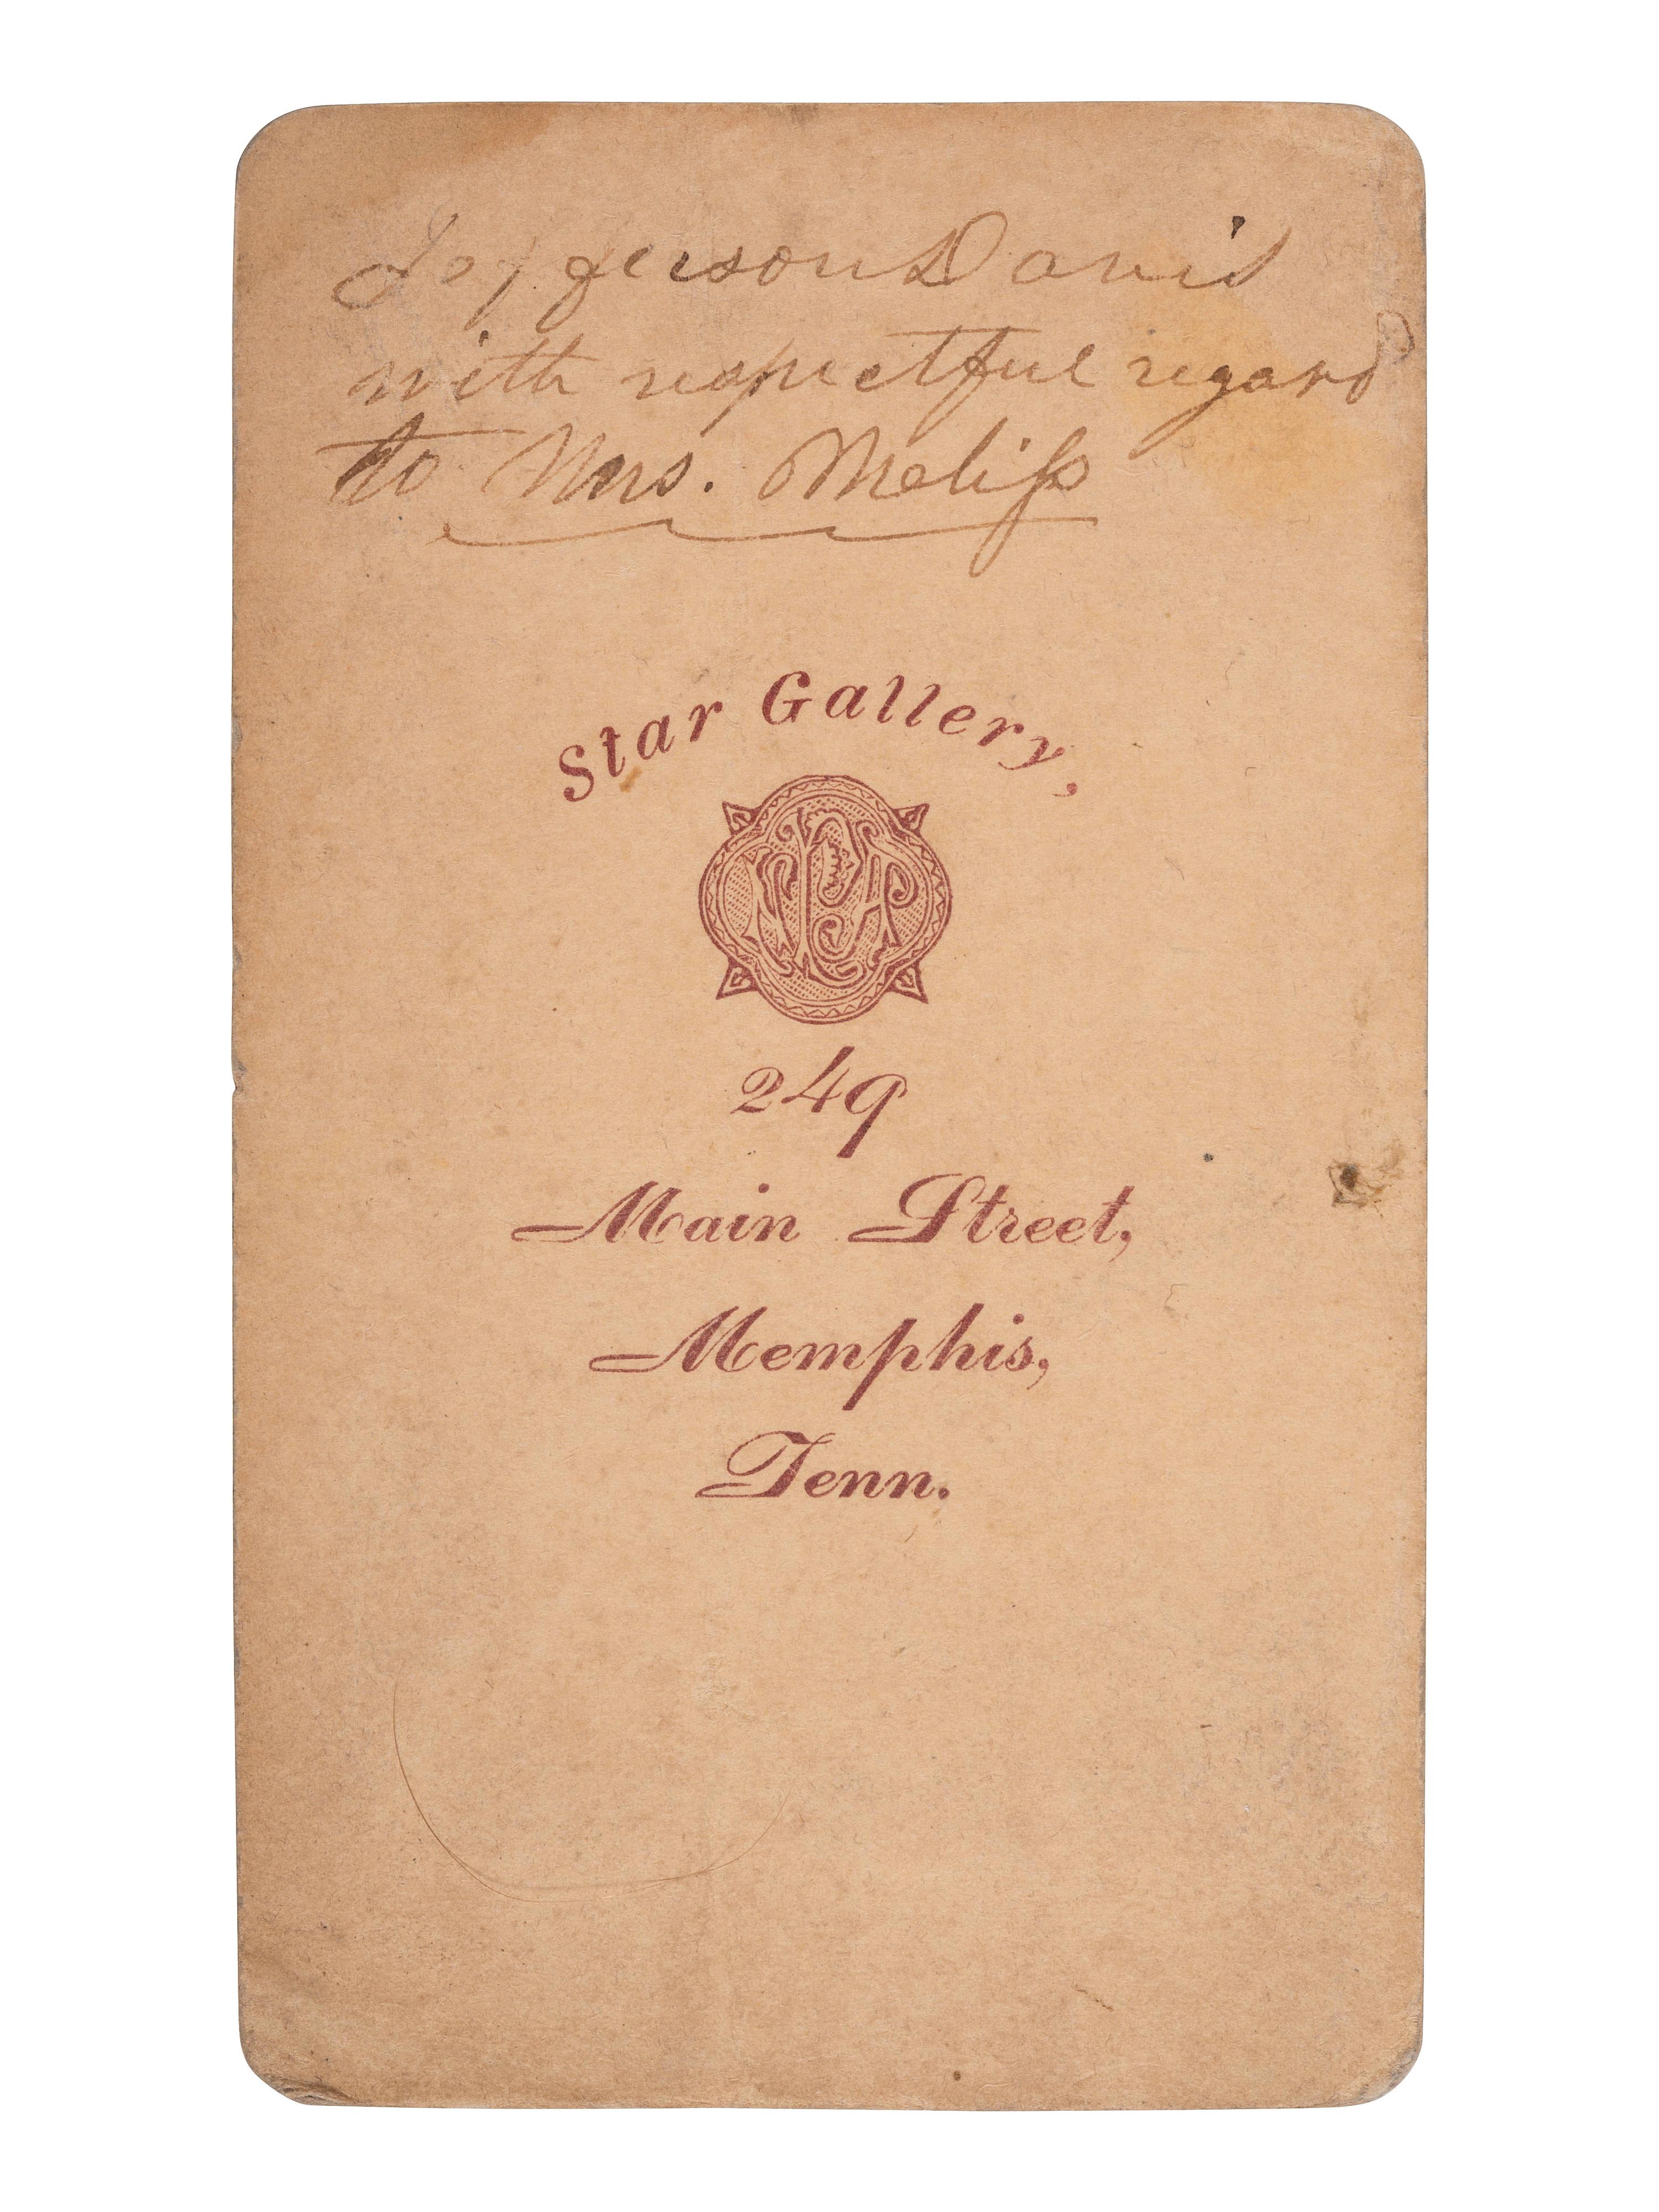 Jefferson Davis
with respectful regard
to Mrs. Meliſs
Star Gallery,
249
Main Street,
Memphis,
Tenn.